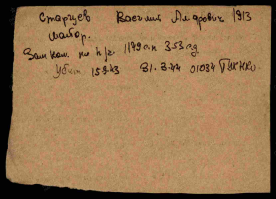 Старцев Василий Андрович 1913
майор.
Зам ком. по п/ч 1179 с.п. 353 сд
Убит 15.9.43 31.3.44 01034